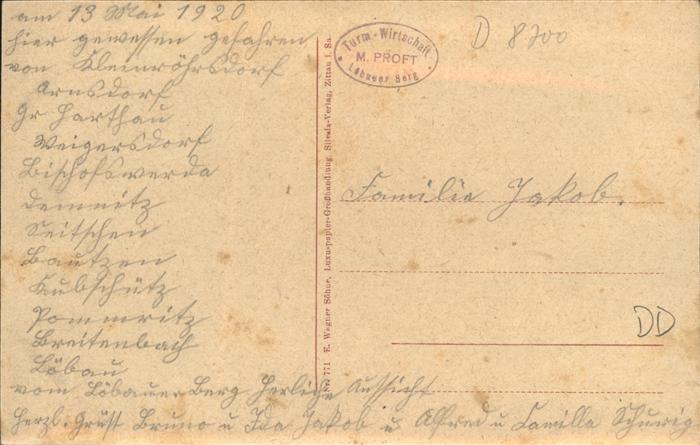 am 13 Mai 1920
hier gewessen gefahren
von Kleinröhrsdorf
Arnsdorf
Gr Harthau
Weigersdorf
Bischofswerda
Demnitz
Seitschen
Bautzen
Kubschütz
Pommritz
Breitenbach
Löbau
vom Löbauer Berg herliche Aussicht
herzl. Grüst Bruno u Ida Jakob u Alfred u Camilla Schurig
Turm-Wirtschaft
M. PROFT
Löbauer Berg
D 8700
Familie Jakob.
DD
No 771 E. Wagner Söhne, Luxu-papier-Großhandlung, Silesia-Verlag, Zittau i. Sa.